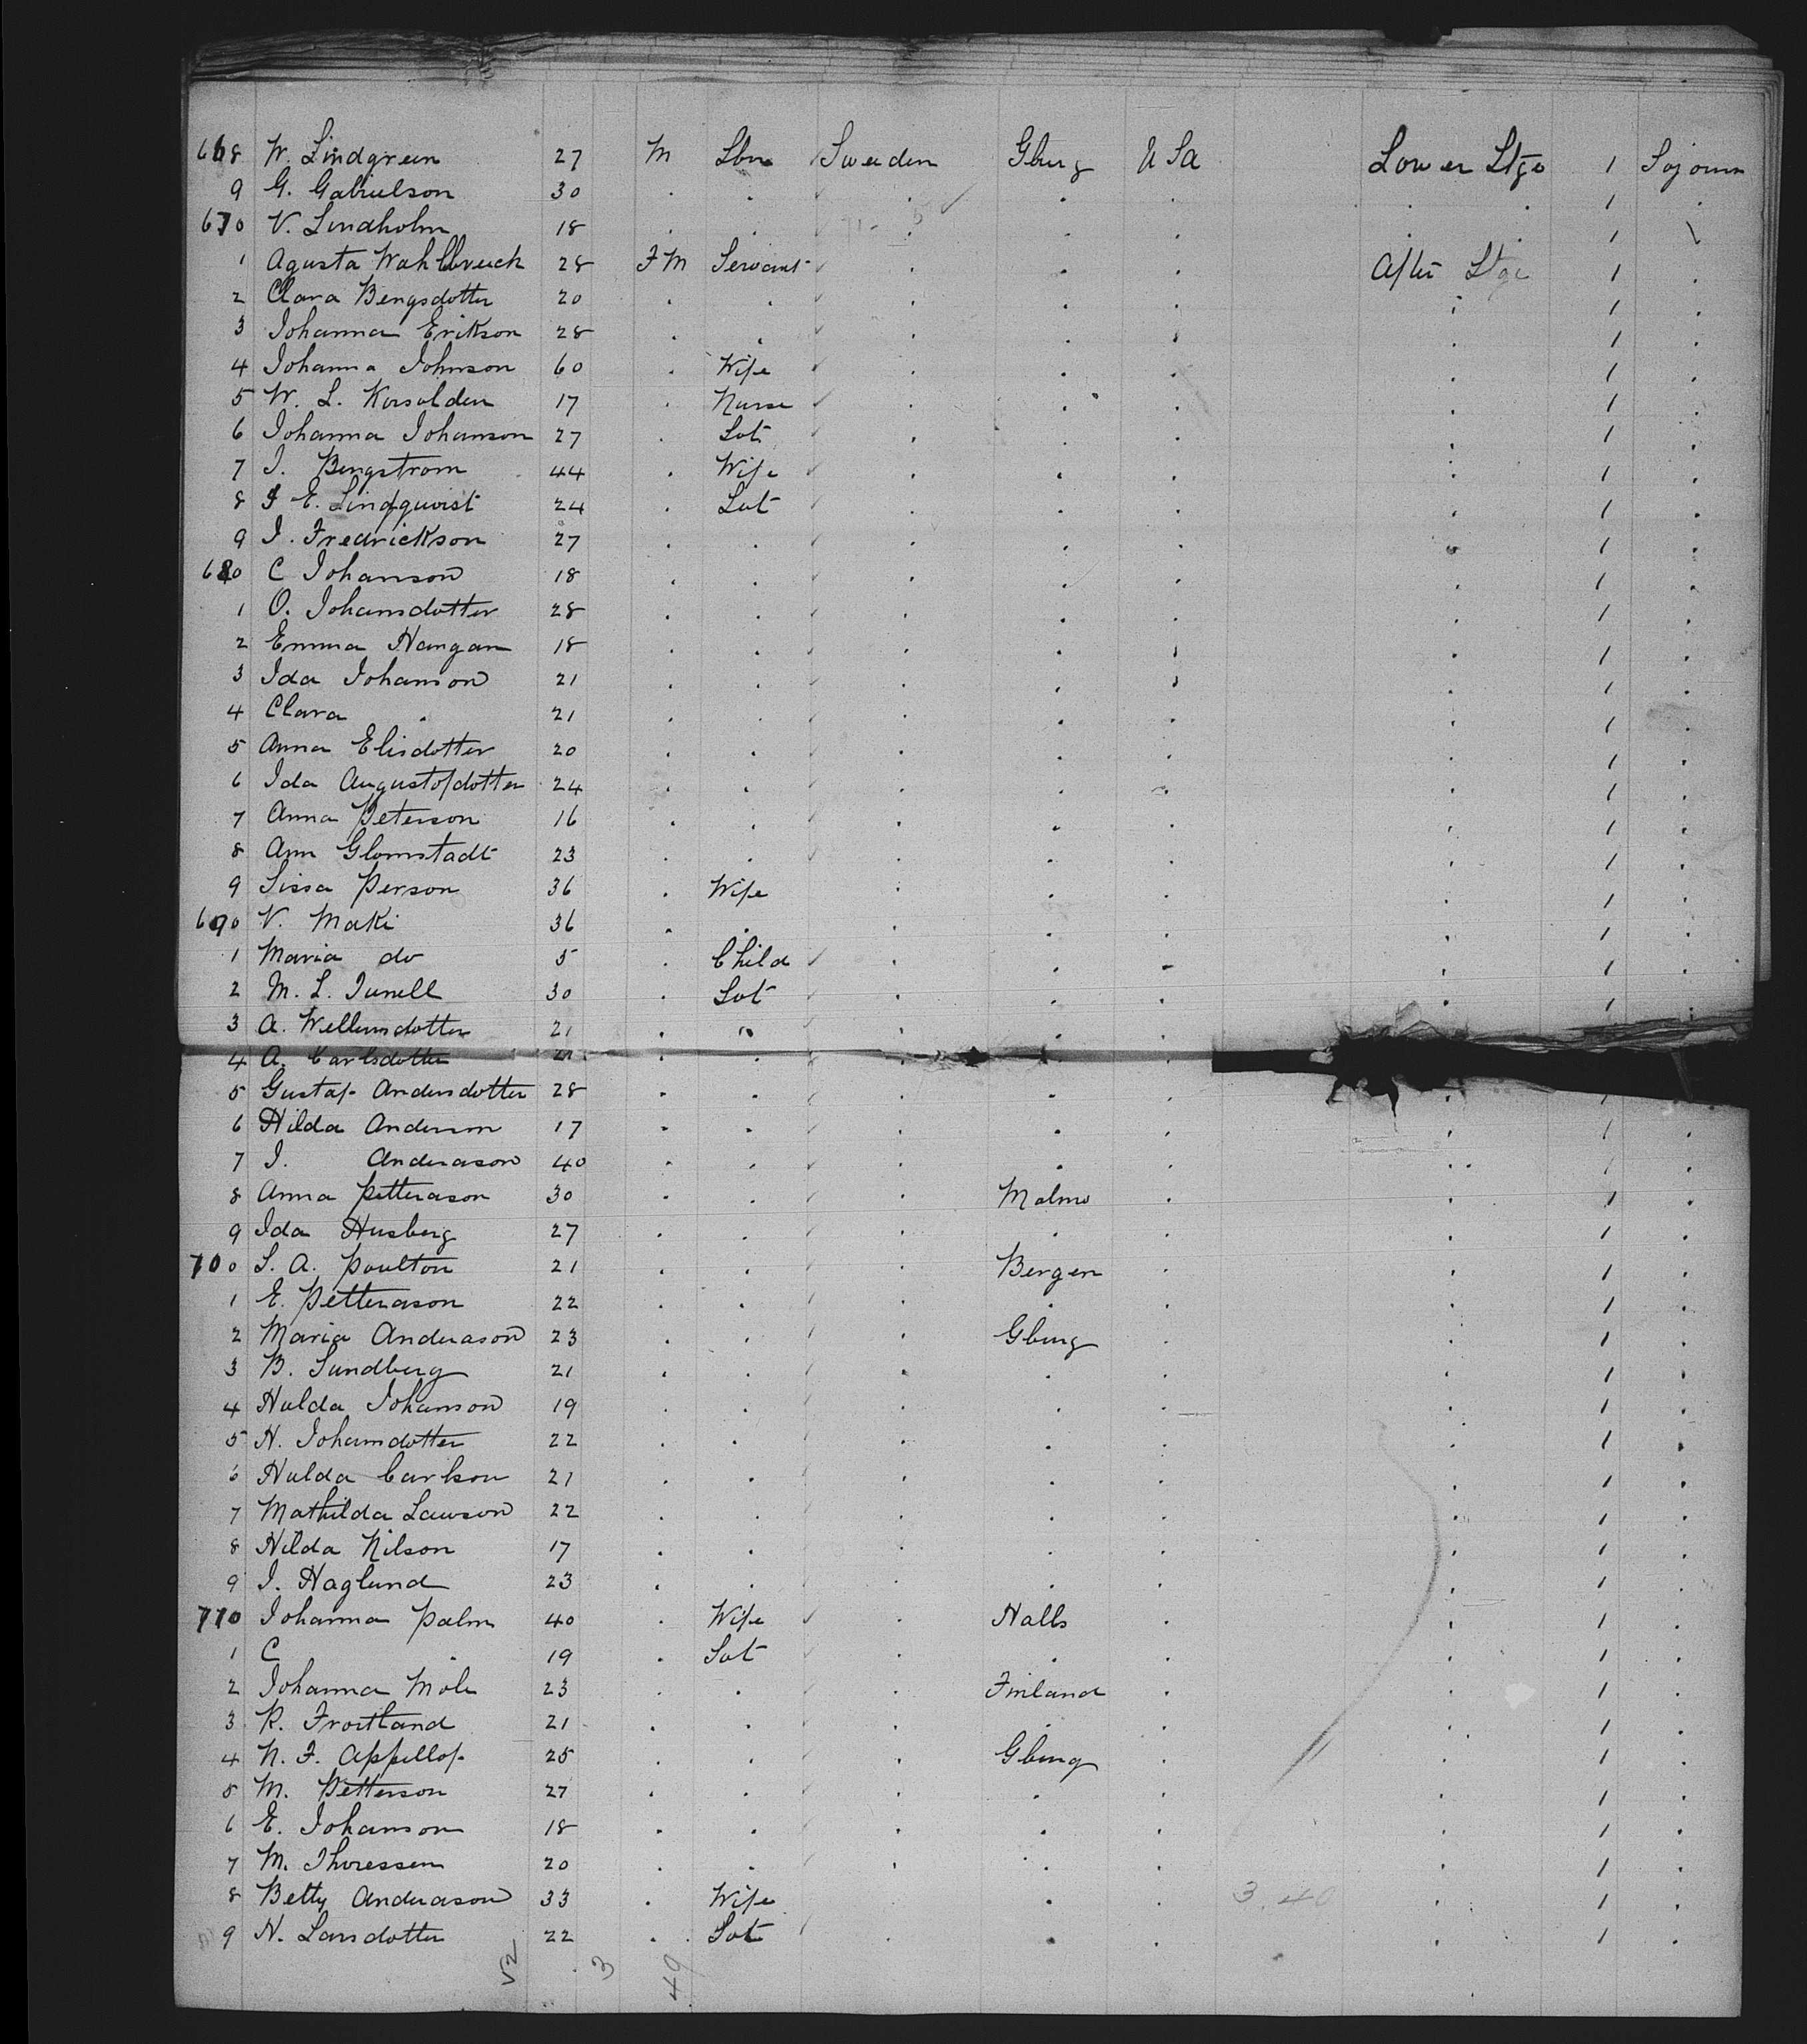 668 W. Lindgreen 27 M Lbr Sweeden Gburg U Sa Lower Stge 1 Sojourn
9 G. Gabrielson 30 . . . . . . . 1 .
670 V. Lindholm 18 . . . . . . . 1 \
1 Agusta 28 FM Servant . . . After Stge 1 .
2 Clara Bengsdotter 20 . . . . . . 1 .
3 Johanna Erikson 28 . . . . . . 1 .
4 Johanna Johnson 60 . Wife . . . . 1 .
5 W. L. 17 . Nurse . . . . 1 .
6 Johanna Johanson 27 . Sot . . . . 1 .
7 J. Bengstrom 44 . Wife . . . . 1 .
8 E. Lindquvist 24 . Sot . . . . 1 .
9 J. Fredrickson 27 . . . . . . 1 .
680 C Johanson 18 . . . . . . 1 .
1 O. Johansdotter 28 . . . . . . 1 .
2 Emma Hangan 18 . . . . . . 1 .
3 Ida Johanson 21 . . . . . . 1 .
4 Clara . 21 . . . . . . 1 .
5 Anna Elisdotter 20 . . . . . . 1 .
6 Ida Augustofdotter 24 . . . . . . 1 .
7 Anna Peterson 16 . . . . . . 1 .
8 Ann Glomstadt 23 . . . . . . 1 .
9 Sissa Person 36 . Wife . . . . 1 .
690 V. Maki 36 . . . . . . 1 .
1 Maria do 5 . Child . . . . 1 .
2 M. L. Junell 30 . Sot . . . . 1 .
3 A. 21 . " . . .
4 A. Carlsdotter . . . . .
5 Gustaf Andersdotter 28 . . . . . . 1
6 Hilda Anderson 17 . . . . . . 1 .
7 J. Anderason 40 . . . . . . 1 .
8 Anna Petterason 30 . . . Malmo . . 1 .
9 Ida Husberg 27 . . . . . . 1 .
700 S. A. Poulton 21 . . . Bergen . . 1 .
1 E. Petterason 22 . . . . . . 1 .
2 Maria Anderason 23 . . . Gburg . . 1 .
3 B. Sundberg 21 . . . . . . 1 .
4 Hulda Johanson 19 . . . . . . 1 .
5 H. Johansdotter 22 . . . . . . 1 .
6 Hulda Carlson 21 . . . . . . 1 .
7 Mathilda Lawson 22 . . . . . . 1 .
8 Hilda Nilson 17 . . . . . . 1 .
9 J. Haglund 23 . . . . . . 1 .
710 Johanna Palm 40 . Wife . Halls . . 1 .
1 C . 19 . Sot . . . . 1 .
2 Johanna Mole 23 . . . Finland . . 1 .
3 K. Frostland 21 . . . . . . 1 .
4 N. F. Appellof 25 . . . Gburg . . 1 .
5 M. Petterson 27 . . . . . . 1 .
6 E. Johanson 18 . . . . . . 1 .
7 M. Thoressen 20 . . . . . . 1 .
8 Betty Anderason 33 . Wife . . 3.40 . 1 .
9 N. Larsdotter 22 . Sot . . . . 1 .
52 3 49